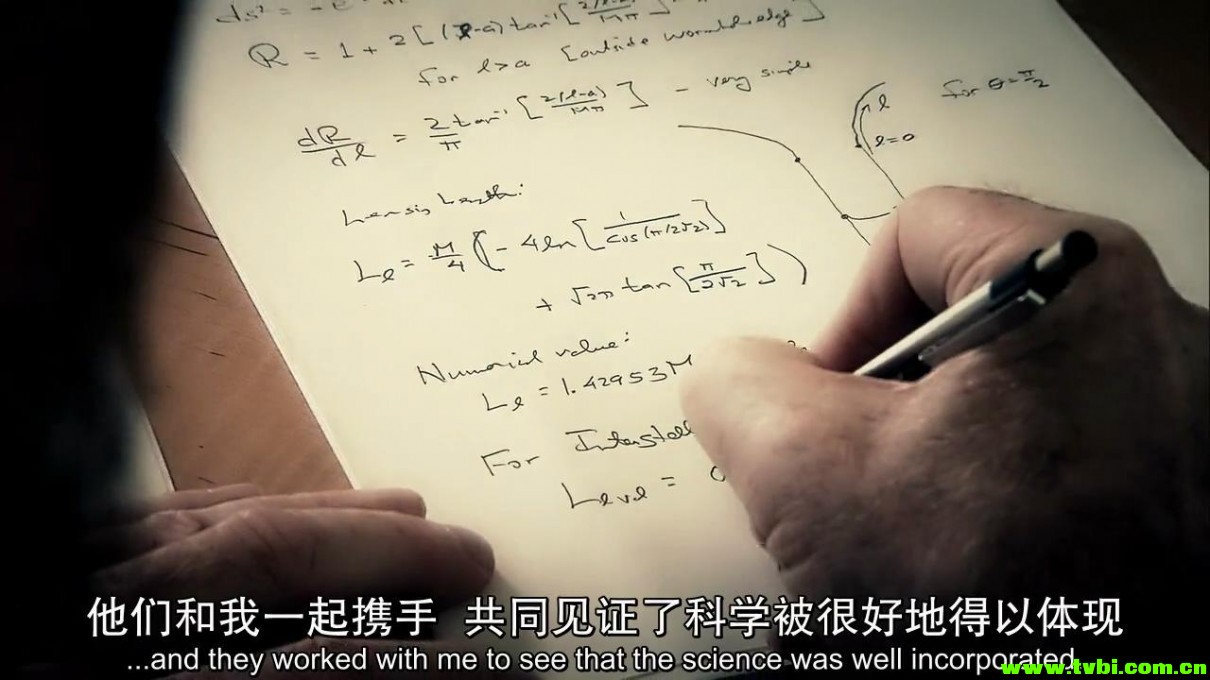 ds² = -e
R = 1 + 2 [ (l-a) tan⁻¹ [ 2(l-a)/πM ]
for l > a [outside wormhole edge]
dR/dl = 2/π tan⁻¹ [ 2(l-a)/πM ] - very simple
for θ = π/2
l
l=0
Lensing Length:
L_l = M/4 ( - 4 ln [ 1/cos(π/2√2) ]
+ √2π tan [ π/2√2 ] )
Numerical value:
L_l = 1.42953M
For Interstell
Level = 0
他们和我一起携手 共同见证了科学被很好地得以体现
...and they worked with me to see that the science was well incorporated.
www.tvbi.com.cn